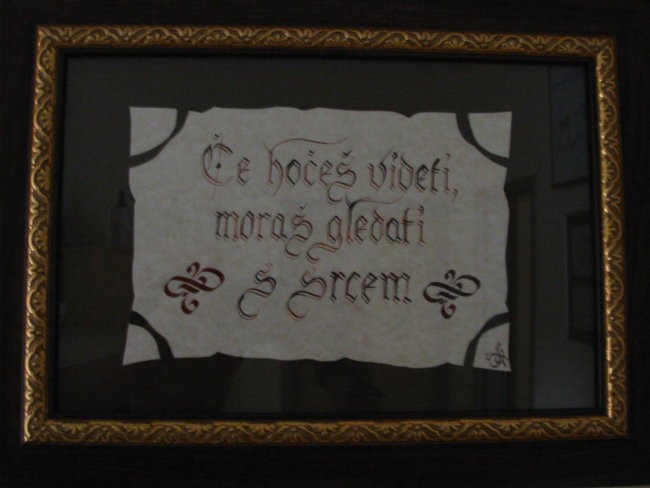 Če hočeš videti,
moraš gledati
s srcem